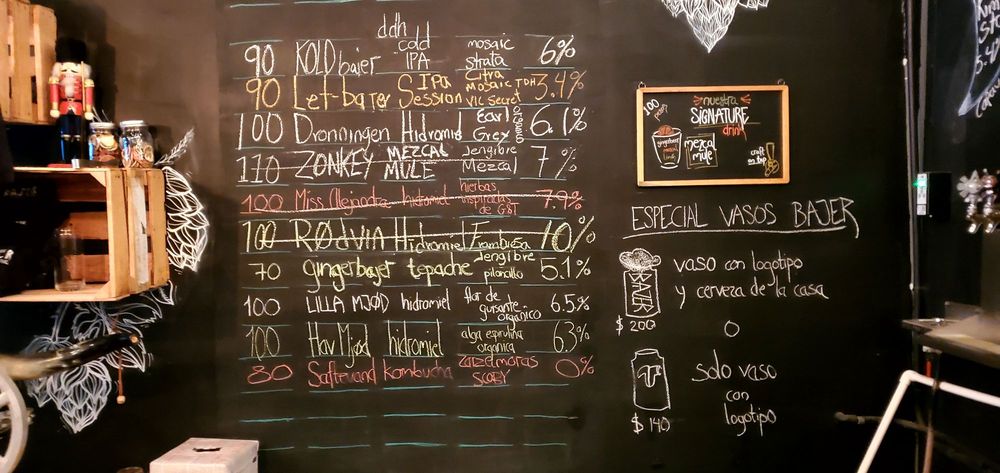 90 KOLD bajer ddh cold IPA mosaic strata 6%
90 Let-bajer SIPA Session Citra Mosaic TDH Vic Secret 3.4%
100 Dronningen Hidromiel Earl Grey 6.1%
110 ZONKEY MEZCAL MULE Jengibre Mezcal 7%
100 Miss Alejandra hidromiel hierbas inspiradas de G&T 7.9%
100 RØDVIN Hidromiel Frambuesa 10%
70 gingerbajer tepache Jengibre piloncillo 5.1%
100 LILLA MJØD hidromiel flor de guisante orgánico 6.5%
100 Hav Mjød hidromiel alga espirulina organica 6.3%
80 Saftevand kombucha zarzamoras SCOBY 0%
100
nuestra
SIGNATURE
drink
gingerbajer
mezcal
lime
mezcal
mule
craft
on tap
ESPECIAL VASOS BAJER
BAJER
vaso con logotipo
y cerveza de la casa
$200
O
solo vaso
con
logotipo
$140